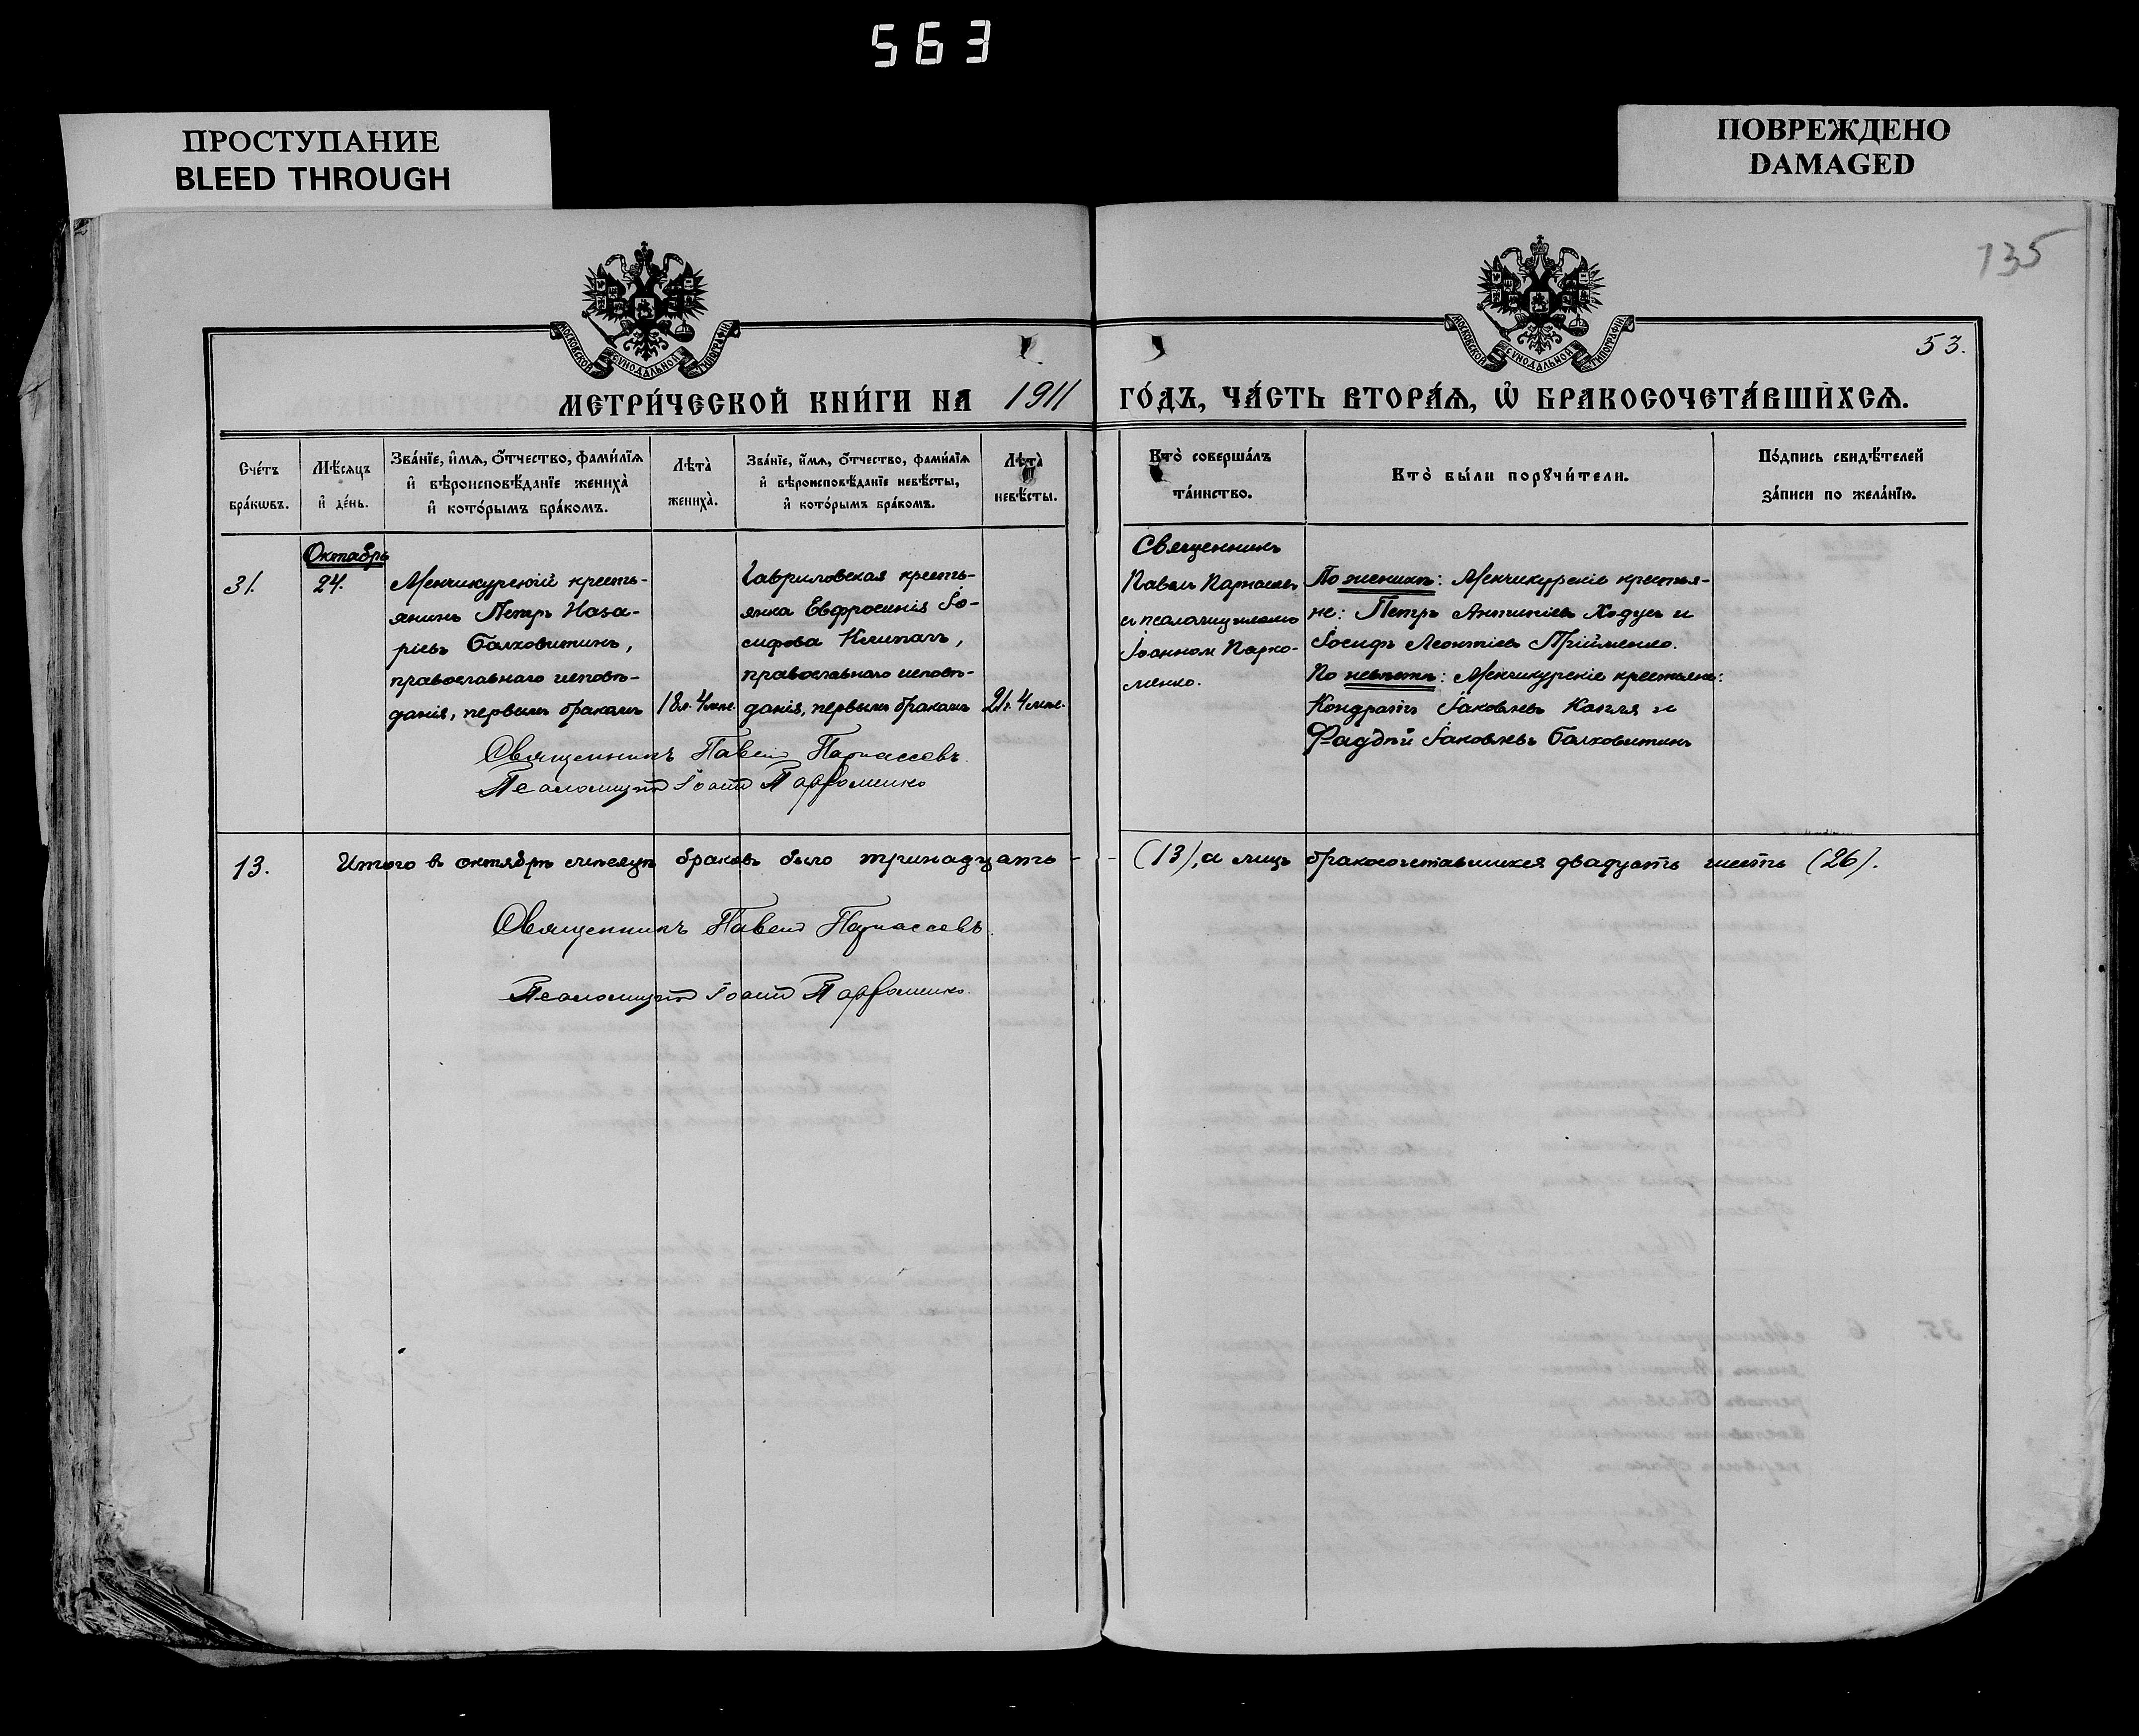 563
ПРОСТУПАНИЕ
BLEED THROUGH
ПОВРЕЖДЕНО
DAMAGED
135
53.
МОСКОВСКОЙ СѴНОДАЛЬНОЙ ТИПОГРАФІИ
МОСКОВСКОЙ СѴНОДАЛЬНОЙ ТИПОГРАФІИ
МЕТРИ́ЧЕСКОЙ КНИ́ГИ НА 1911 ГО́ДЪ, ЧА́СТЬ ВТОРА́Ѧ, Ѡ҆ БРАКОСОЧЕТА́ВШИХСѦ.
Сче́тъ
бра́кѡвъ.
Мѣ́сѧцъ
и҆ де́нь.
Зва́нїе, и҆́мѧ, ѻ҆́тчество, фами́лїѧ
и҆ вѣроисповѣ́данїе жениха̀
и҆ кото́рымъ бра́комъ.
Лѣта̀
жениха̀.
Зва́нїе, и҆́мѧ, ѻ҆́тчество, фами́лїѧ
и҆ вѣроисповѣ́данїе невѣ́сты,
и҆ кото́рымъ бра́комъ.
Лѣта̀
невѣ́сты.
Кто̀ соверша́лъ
та́инство.
Кто̀ бы́ли порꙋчи́тели.
По́дпись свидѣ́телей
за́писи по жела́нїю.
31.
Октябрь
24.
Менчикурскій кресть-
янинъ Петръ Наза-
ріевъ Болховитинъ,
православнаго исповѣ-
данія, первымъ бракомъ
18л. 4мѣс.
Гавриловская кресть-
янка Евфросинія Іо-
сифова Климатъ,
православнаго исповѣ-
данія, первымъ бракомъ
21г. 4мѣс.
Священникъ
Павелъ Парнассевъ
съ псаломщикомъ
Іоанномъ Парѳо-
менко.
По женихѣ: Менчикурскіе крестья-
не: Петръ Антиніевъ Ходусъ и
Іосифъ Леонтіевъ Прійменко.
По невѣстѣ: Менчикурскіе крестьяне:
Кондратъ Іаковлевъ Капля и
Фаддѣй Іаковлевъ Болховитинъ
Священникъ Павелъ Парнассевъ.
Псаломщикъ Іоаннъ Парѳоменко
13. Итого въ октябрѣ мѣсяцѣ браковъ было тринадцать - - (13), а лицъ бракосочетавшихся двадцать шесть (26).
Священникъ Павелъ Парнассевъ.
Псаломщикъ Іоаннъ Парѳоменко.